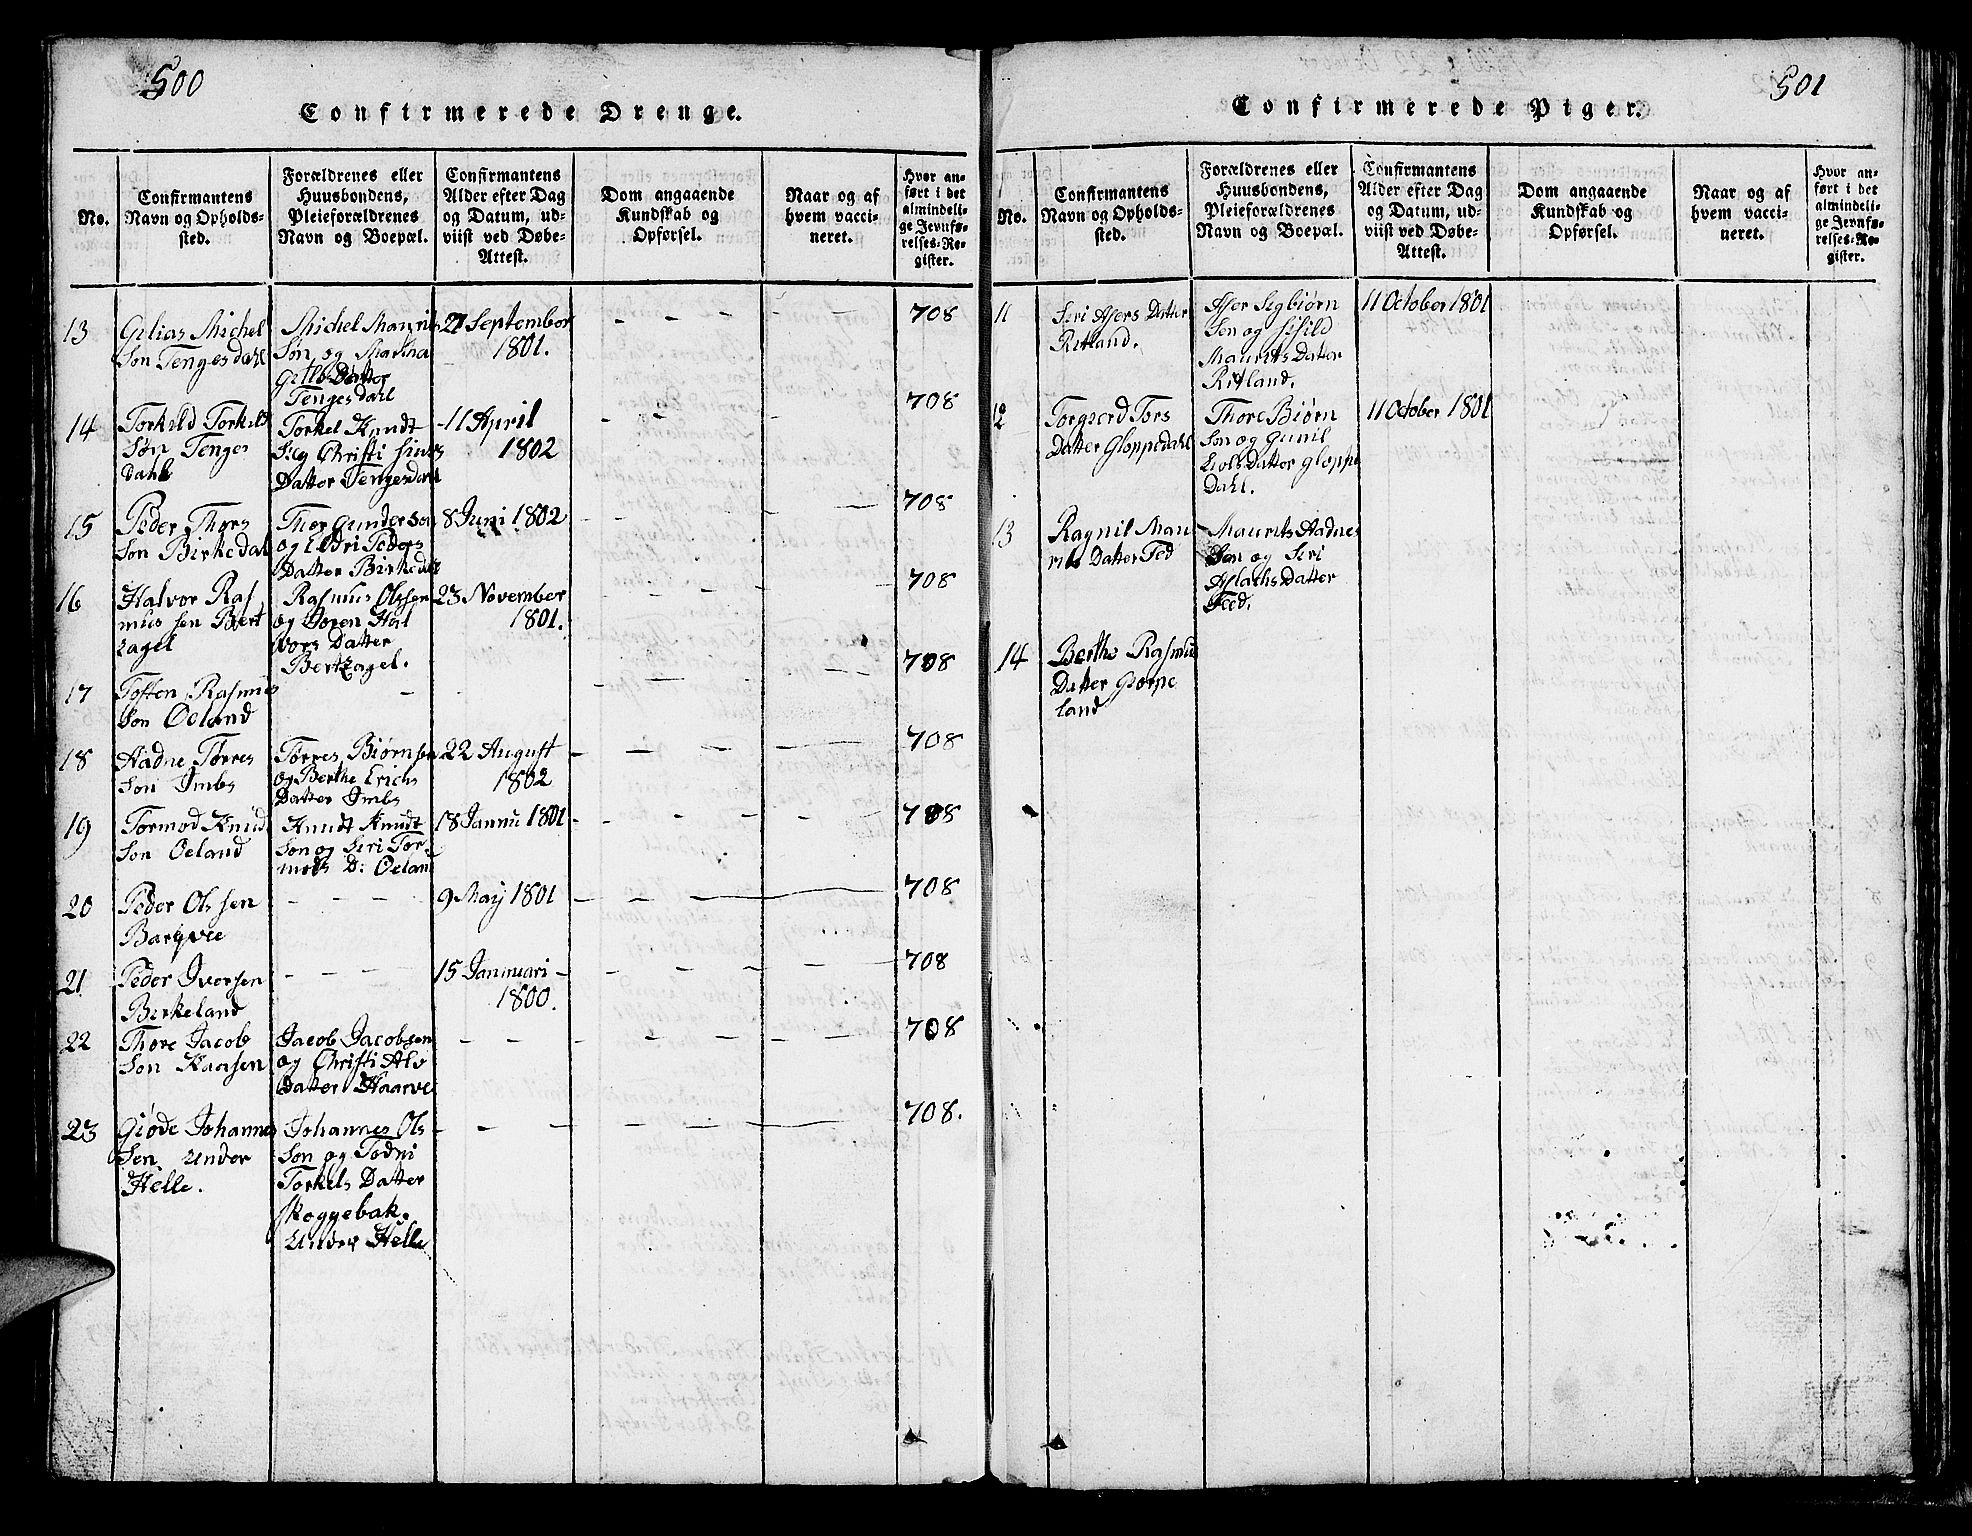 500
Confirmerede Drenge.
No.
Confirmantens
Navn og Opholds-
sted.
Forældrenes eller
Huusbondens,
Pleieforældrenes
Navn og Boepæl.
Confirmantens
Alder efter Dag
og Datum, ud-
viist ved Døbe-
Attest.
Dom angaaende
Kundskab og
Opførsel.
Naar og af
hvem vacci-
neret.
Hvor an-
ført i det
almindeli-
ge Jevnfø-
relses-Re-
gister.
13
Gelias Michel
Søn Tengesdahl
Michel Maurits
Søn og Martha
Datter
Tengesdahl
27 September
1801.
708
14
Torkild Torkild
Søn Tenges
Dahl
Torkel Knudt
Søg Christi Sines
Datter Tengesdahl
11 April
1802
708
15
Peder Thors
Søn Birkedal
Thor Gunderson
og Eldri Peders
Datter Birkedal
8 Juni 1802
708
16
Halvor Ras
mus sen Bert
zagel
Rasmus Olssen
og Joren Hal
vors Datter
Bertzagel.
23 November
1801.
708
17
Tosten Rasmus
Søn Oeland
708
18
Aadne Torres
Søn Imbs
Torres Biørnsen
og Berthe Erichs
Datter Imbs
22 August
1802
708
19
Tormod Knud
Søn Oeland
Knudt Knudt
Søn og Seri Tor-
mods D: Oeland
18 Jannu 1801
708
20
Peder Olssen
Bargvee
9 May 1801
708
21
Peder Iversen
Birkeland
15 Januari
1800.
708
22
Thore Jacob
Søn Kaasen
Jacob Jacobsen
og Christi Als
Datter Haarve
708
23
Giøde Johannes
Sen. Under
Helle.
Johannes Ols
Søn og Todni
Torkels Datter
Skoggebak.
Under Helle
708.
501
Confirmerede Piger.
No.
Confirmantens
Navn og Opholds-
sted.
Forældrenes eller
Huusbondens,
Pleieforældrenes
Navn og Boepæl.
Confirmantens
Alder efter Dag
og Datum, ud-
viist ved Døbe-
Attest.
Dom angaaende
Kundskab og
Opførsel.
Naar og af
hvem vacci-
neret.
Hvor an-
ført i det
almindeli-
ge Jevnfø-
relses-Re-
gister.
11
Seri Asers Datter
Ritland.
Aser Segbiørn
Sen og Sisild
Maurits Datter
Ritland.
11 October 1801
12
Torgierd Tors
Datter Gloppedahl
Thore Biørn
Søn og Gunil
Datter Gloppe
Dahl.
11 October 1801
13
Ragnil Mau
rits Datter Fed
Maurits Aadnes
Søn og Seri
Aslachs Datter
Feed.
14
Berthe Rasmus
Datter Gierpe
land